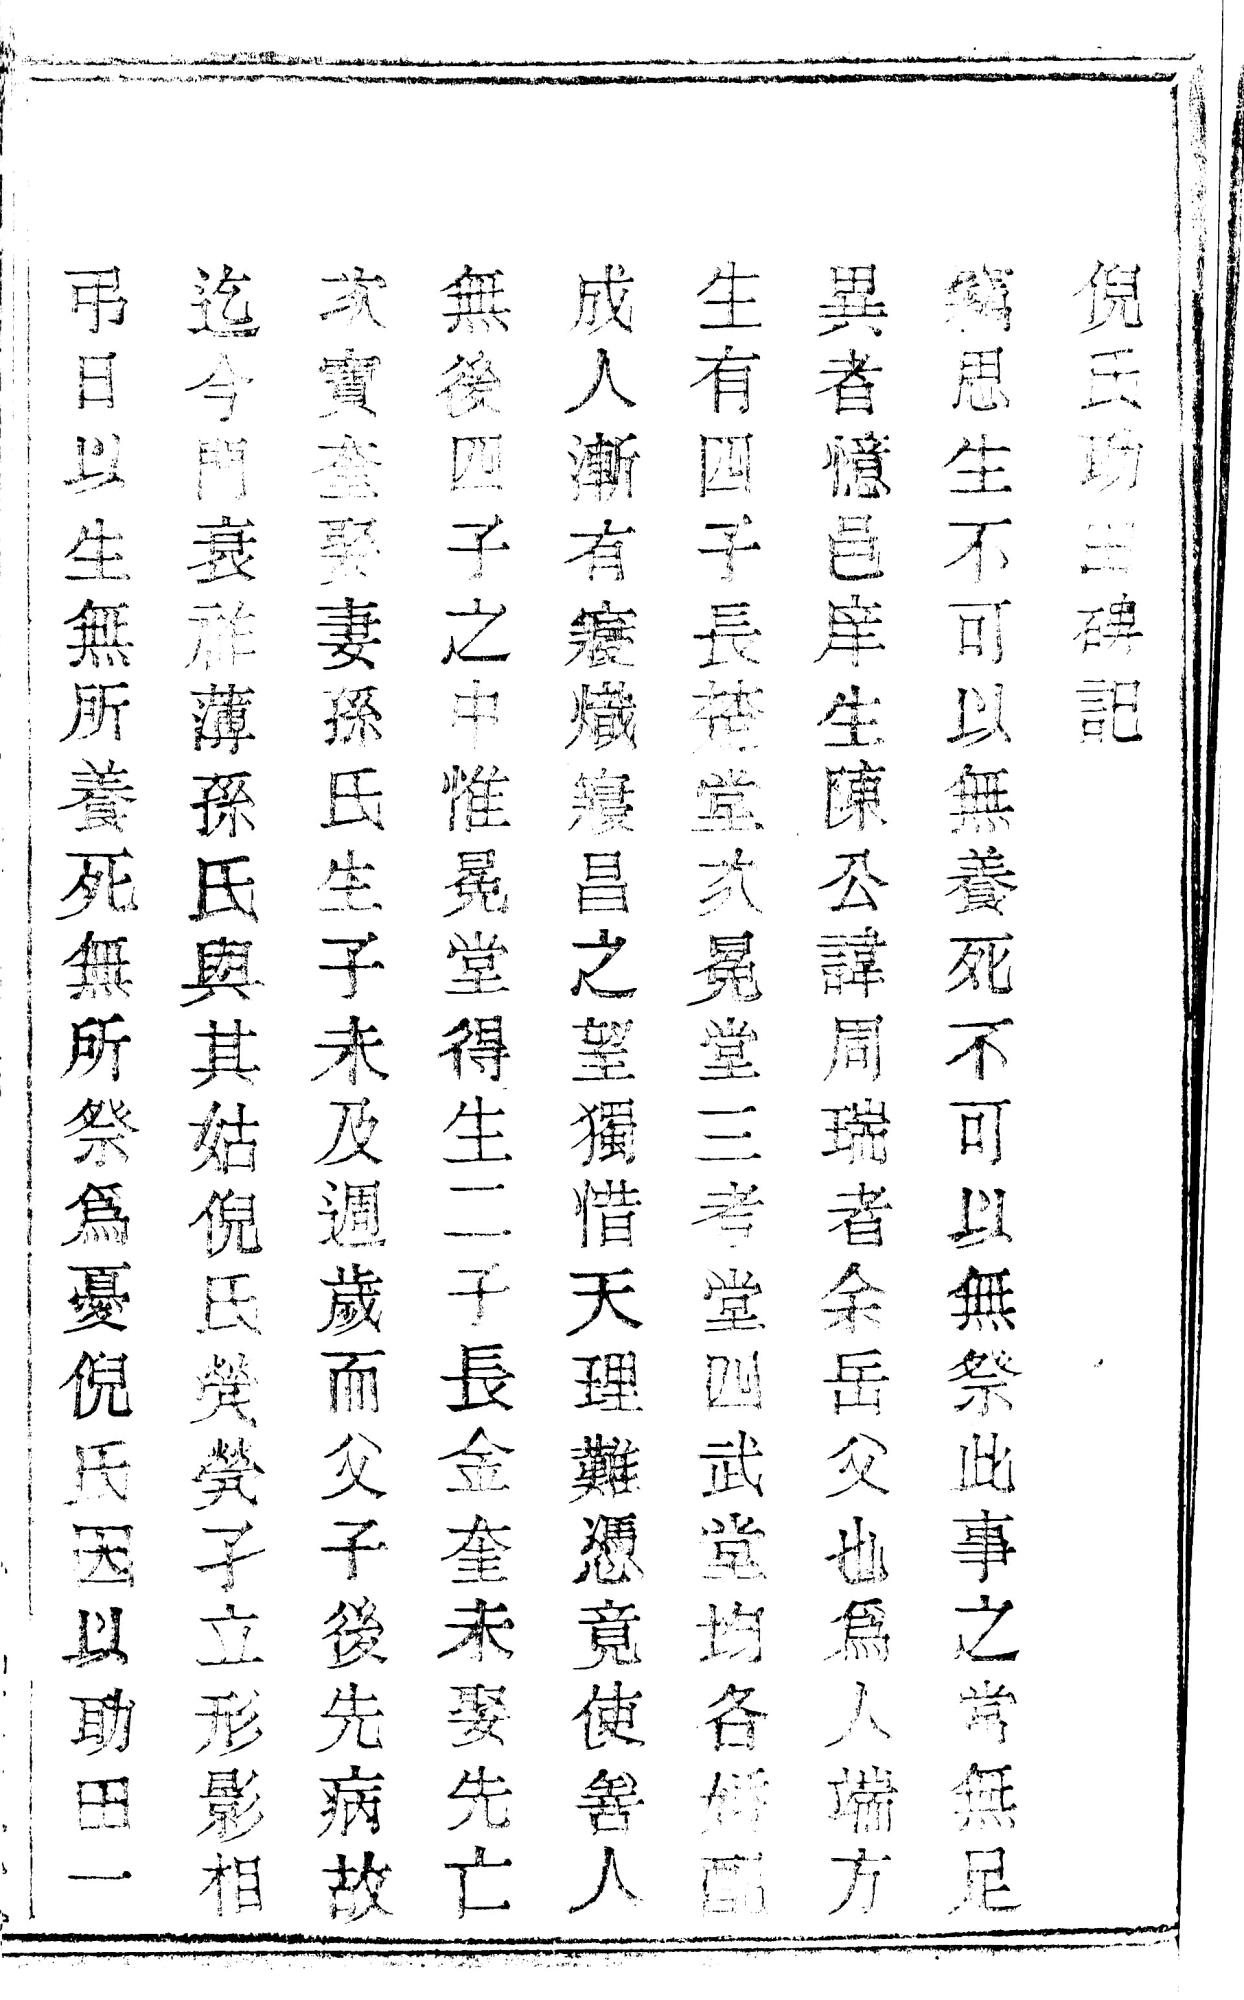 倪氏助田碑記
竊思生不可以無養死不可以無祭此事之常無足
異者憶邑庠生陳公諱周瑞者余岳父也爲人端方
生有四子長楚堂次冕堂三考堂四武堂均各娉配
成人漸有寢熾寢昌之望獨惜天理難憑竟使善人
無後四子之中惟冕堂得生二子長金奎未娶先亡
次寶奎娶妻孫氏生子未及週歲而父子後先病故
迄今門衰祚薄孫氏與其姑倪氏煢煢孑立形影相
弔日以生無所養死無所祭爲憂倪氏因以助田一